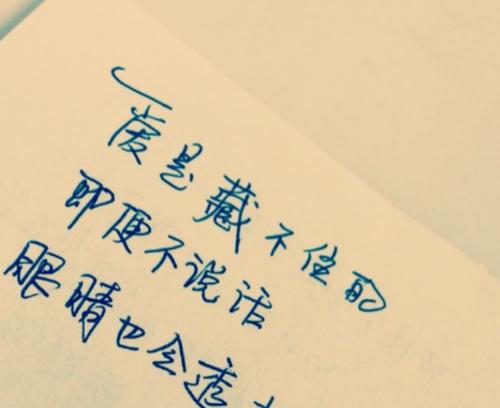 爱是藏不住的
即便不说话
眼睛也会透